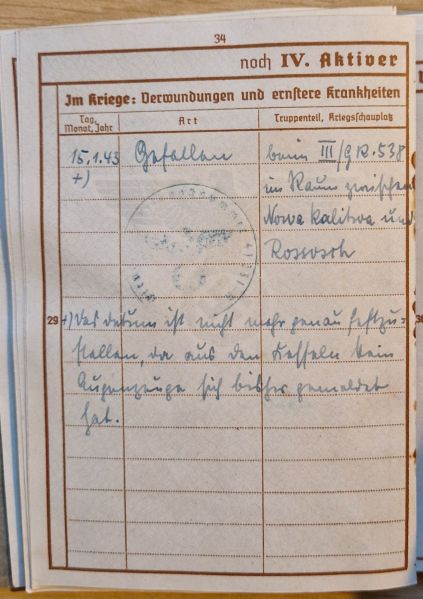 34
noch IV. Aktiver
Im Kriege: Verwundungen und ernstere Krankheiten
Tag, Monat, Jahr
Art
Truppenteil, Kriegsschauplatz
15.1.43 Gefallen beim III/G.R.538
+) im Raum zwischen
Nowa Kalitwa und
Rossosch
29 +) Das Datum ist nicht mehr genau festzu-
stellen, da aus dem Kessel kein
Augenzeuge sich bisher gemeldet
hat.